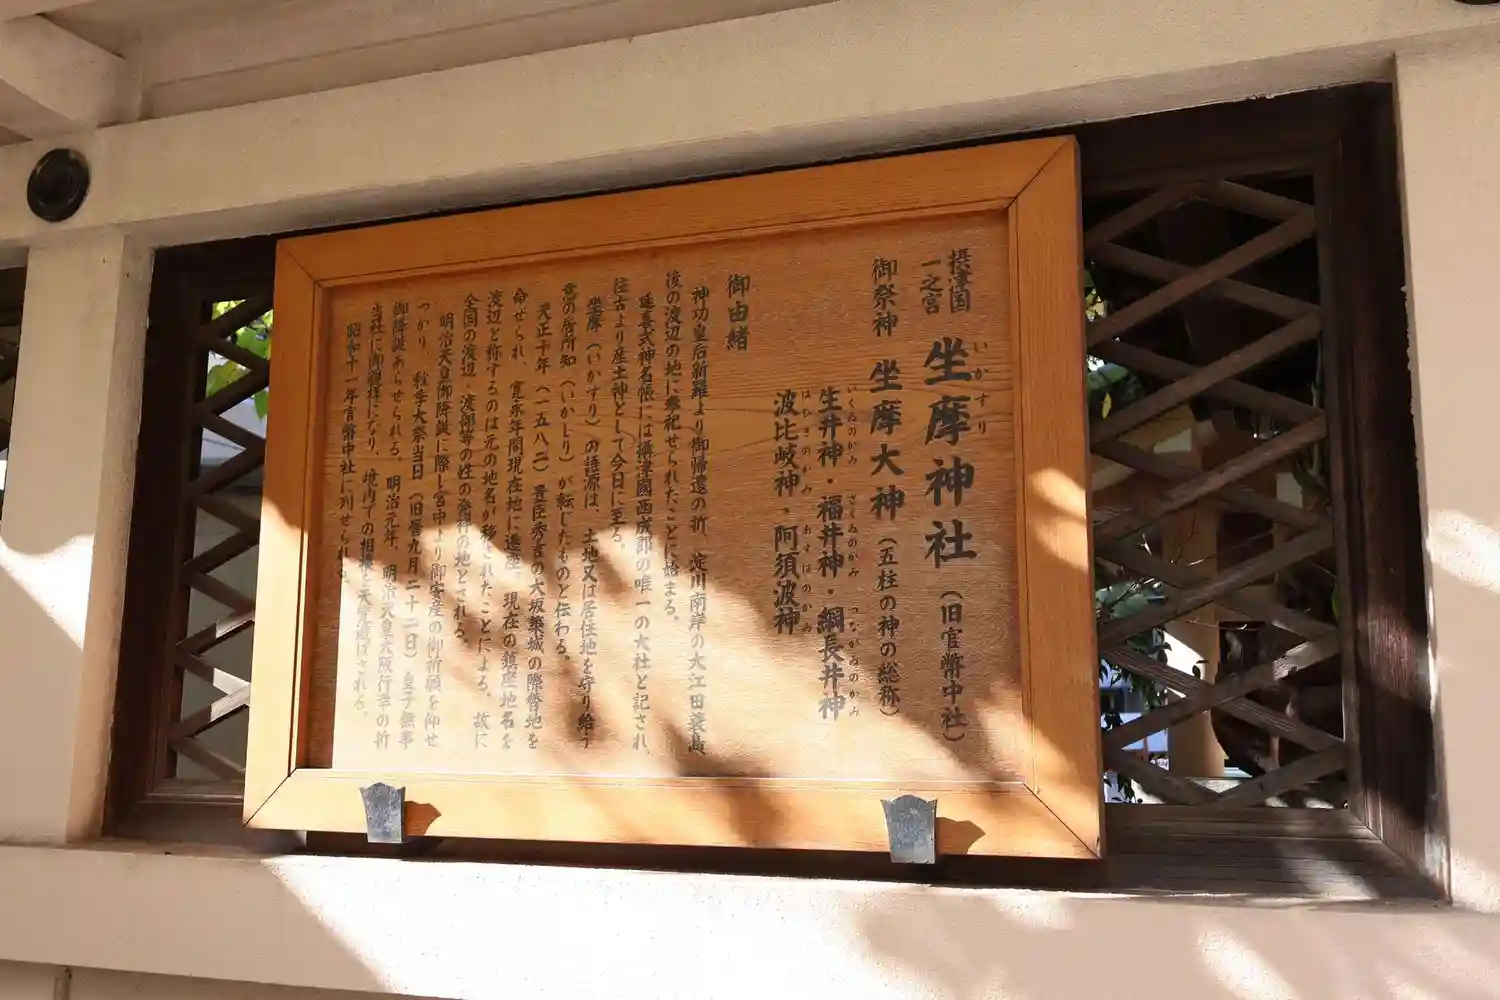 摂津国
一之宮
坐摩神社（旧官幣中社）
いかすり
御祭神 坐摩大神（五柱の神の総称）
いくゐのかみ さくゐのかみ つながゐのかみ
生井神・福井神・綱長井神
はひきのかみ あすはのかみ
波比岐神・阿須波神
御由緒
神功皇后新羅より御帰還の折、淀川南岸の大江田蓑島
後の渡辺の地に奉祀せられたことに始まる。
延喜式神名帳には摂津國西成郡の唯一の大社と記され、
往古より産土神として今日に至る。
坐摩（いかすり）の語源は、土地又は居住地を守り給う
意の居所知（いかしり）が転じたものと伝わる。
天正十年（一五八二）豊臣秀吉の大坂築城の際替地を
命せられ、寛永年間現在地に遷座。現在の鎮座地名を
渡辺と称するのは元の地名が移されたことによる。故に
全国の渡辺・渡部等の姓の発祥の地とされる。
明治天皇御降誕に際し宮中より御安産の御祈願を仰せ
つかり、秋季大祭当日（旧暦九月二十二日）皇子無事
御降誕あらせられる。明治元年、明治天皇大阪行幸の折
当社に御親拝になり、境内での相撲を天覧遊ばされる。
昭和十一年官幣中社に列せられる。